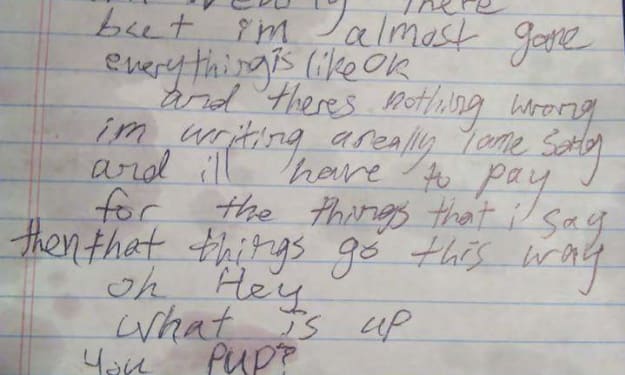 there
but im almost gone
everythingis like Ok
and theres nothing wrong
im writing a really lame song
and ill have to pay
for the things that i say
then that things go this way
oh Hey
what is up
you pup?